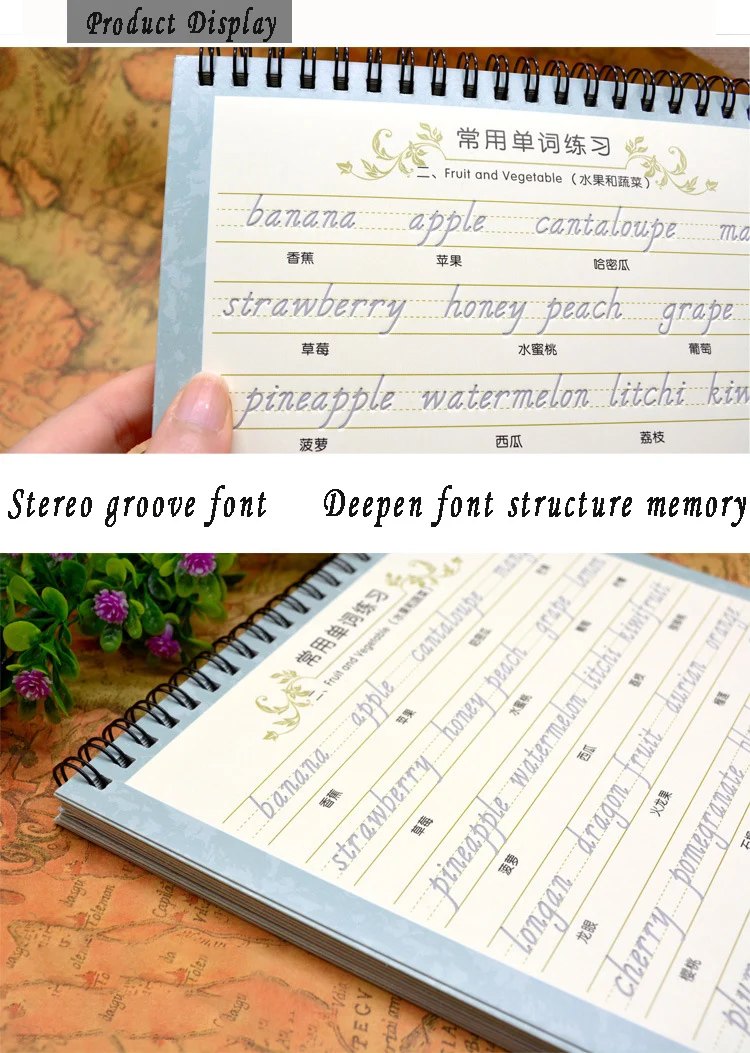 Product Display
常用单词练习
二、Fruit and Vegetable（水果和蔬菜）
banana apple cantaloupe ma
香蕉 苹果 哈密瓜
strawberry honey peach grape
草莓 水蜜桃 葡萄
pineapple watermelon litchi kiw
菠萝 西瓜 荔枝
Stereo groove font Deepen font structure memory
常用单词练习
二、Fruit and Vegetable（水果和蔬菜）
banana apple cantaloupe
香蕉 苹果 哈密瓜
strawberry honey peach grape lemon
草莓 水蜜桃 葡萄
pineapple watermelon litchi kiwifruit
菠萝 西瓜 荔枝
longan dragon fruit durian orange
龙眼 火龙果 榴莲
cherry pomegranate
樱桃
plum